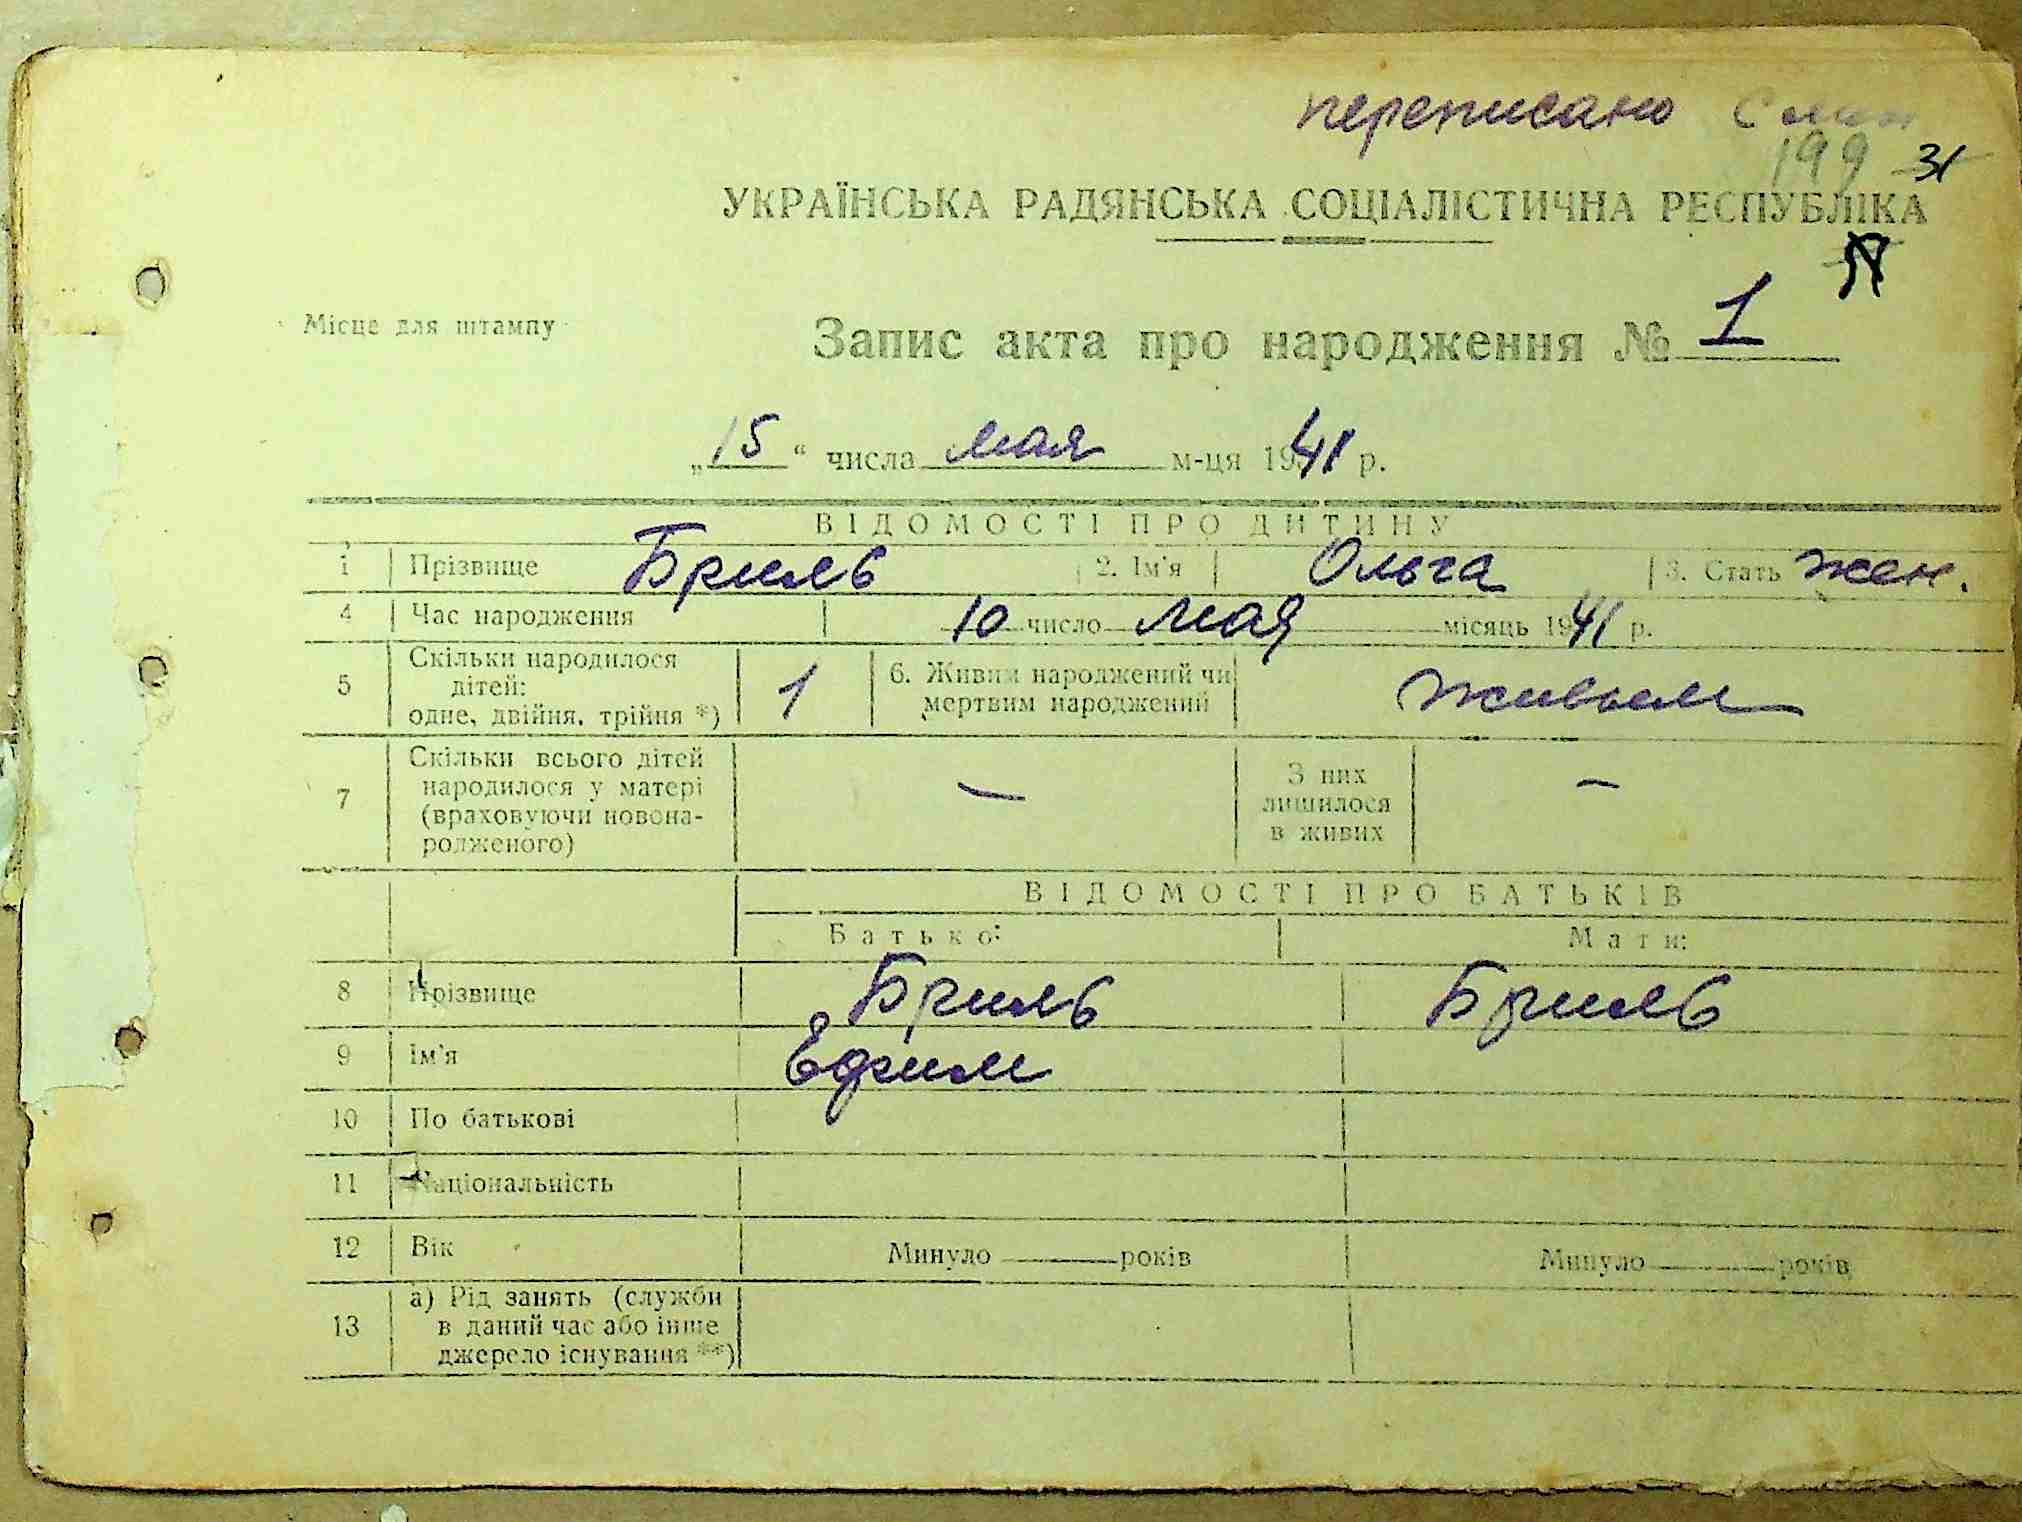 переписано с
199 31
УКРАЇНСЬКА РАДЯНСЬКА СОЦІАЛІСТИЧНА РЕСПУБЛІКА
Місце для штампу
Запис акта про народження № 1
„15“ числа мая м-ця 1941 р.
ВІДОМОСТІ ПРО ДИТИНУ
1 Прізвище Бриль 2. Ім'я Ольга 3. Стать жен.
4 Час народження 10 число мая місяць 1941 р.
5 Скільки народилося дітей: одне, двійня, трійня *) 1 6. Живим народжений чи мертвим народжений живым
7 Скільки всього дітей народилося у матері (враховуючи новонародженого) — З них лишилося в живих —
ВІДОМОСТІ ПРО БАТЬКІВ
Батько: Мати:
8 Прізвище Бриль Бриль
9 Ім'я Ефим
10 По батькові
11 Національність
12 Вік Минуло ——— років Минуло ——— років
13 а) Рід занять (служби в даний час або інше джерело існування **)